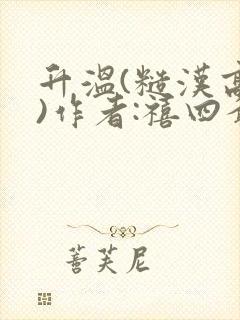 升温(糙漢高
)作者:禧四
菩芙尼